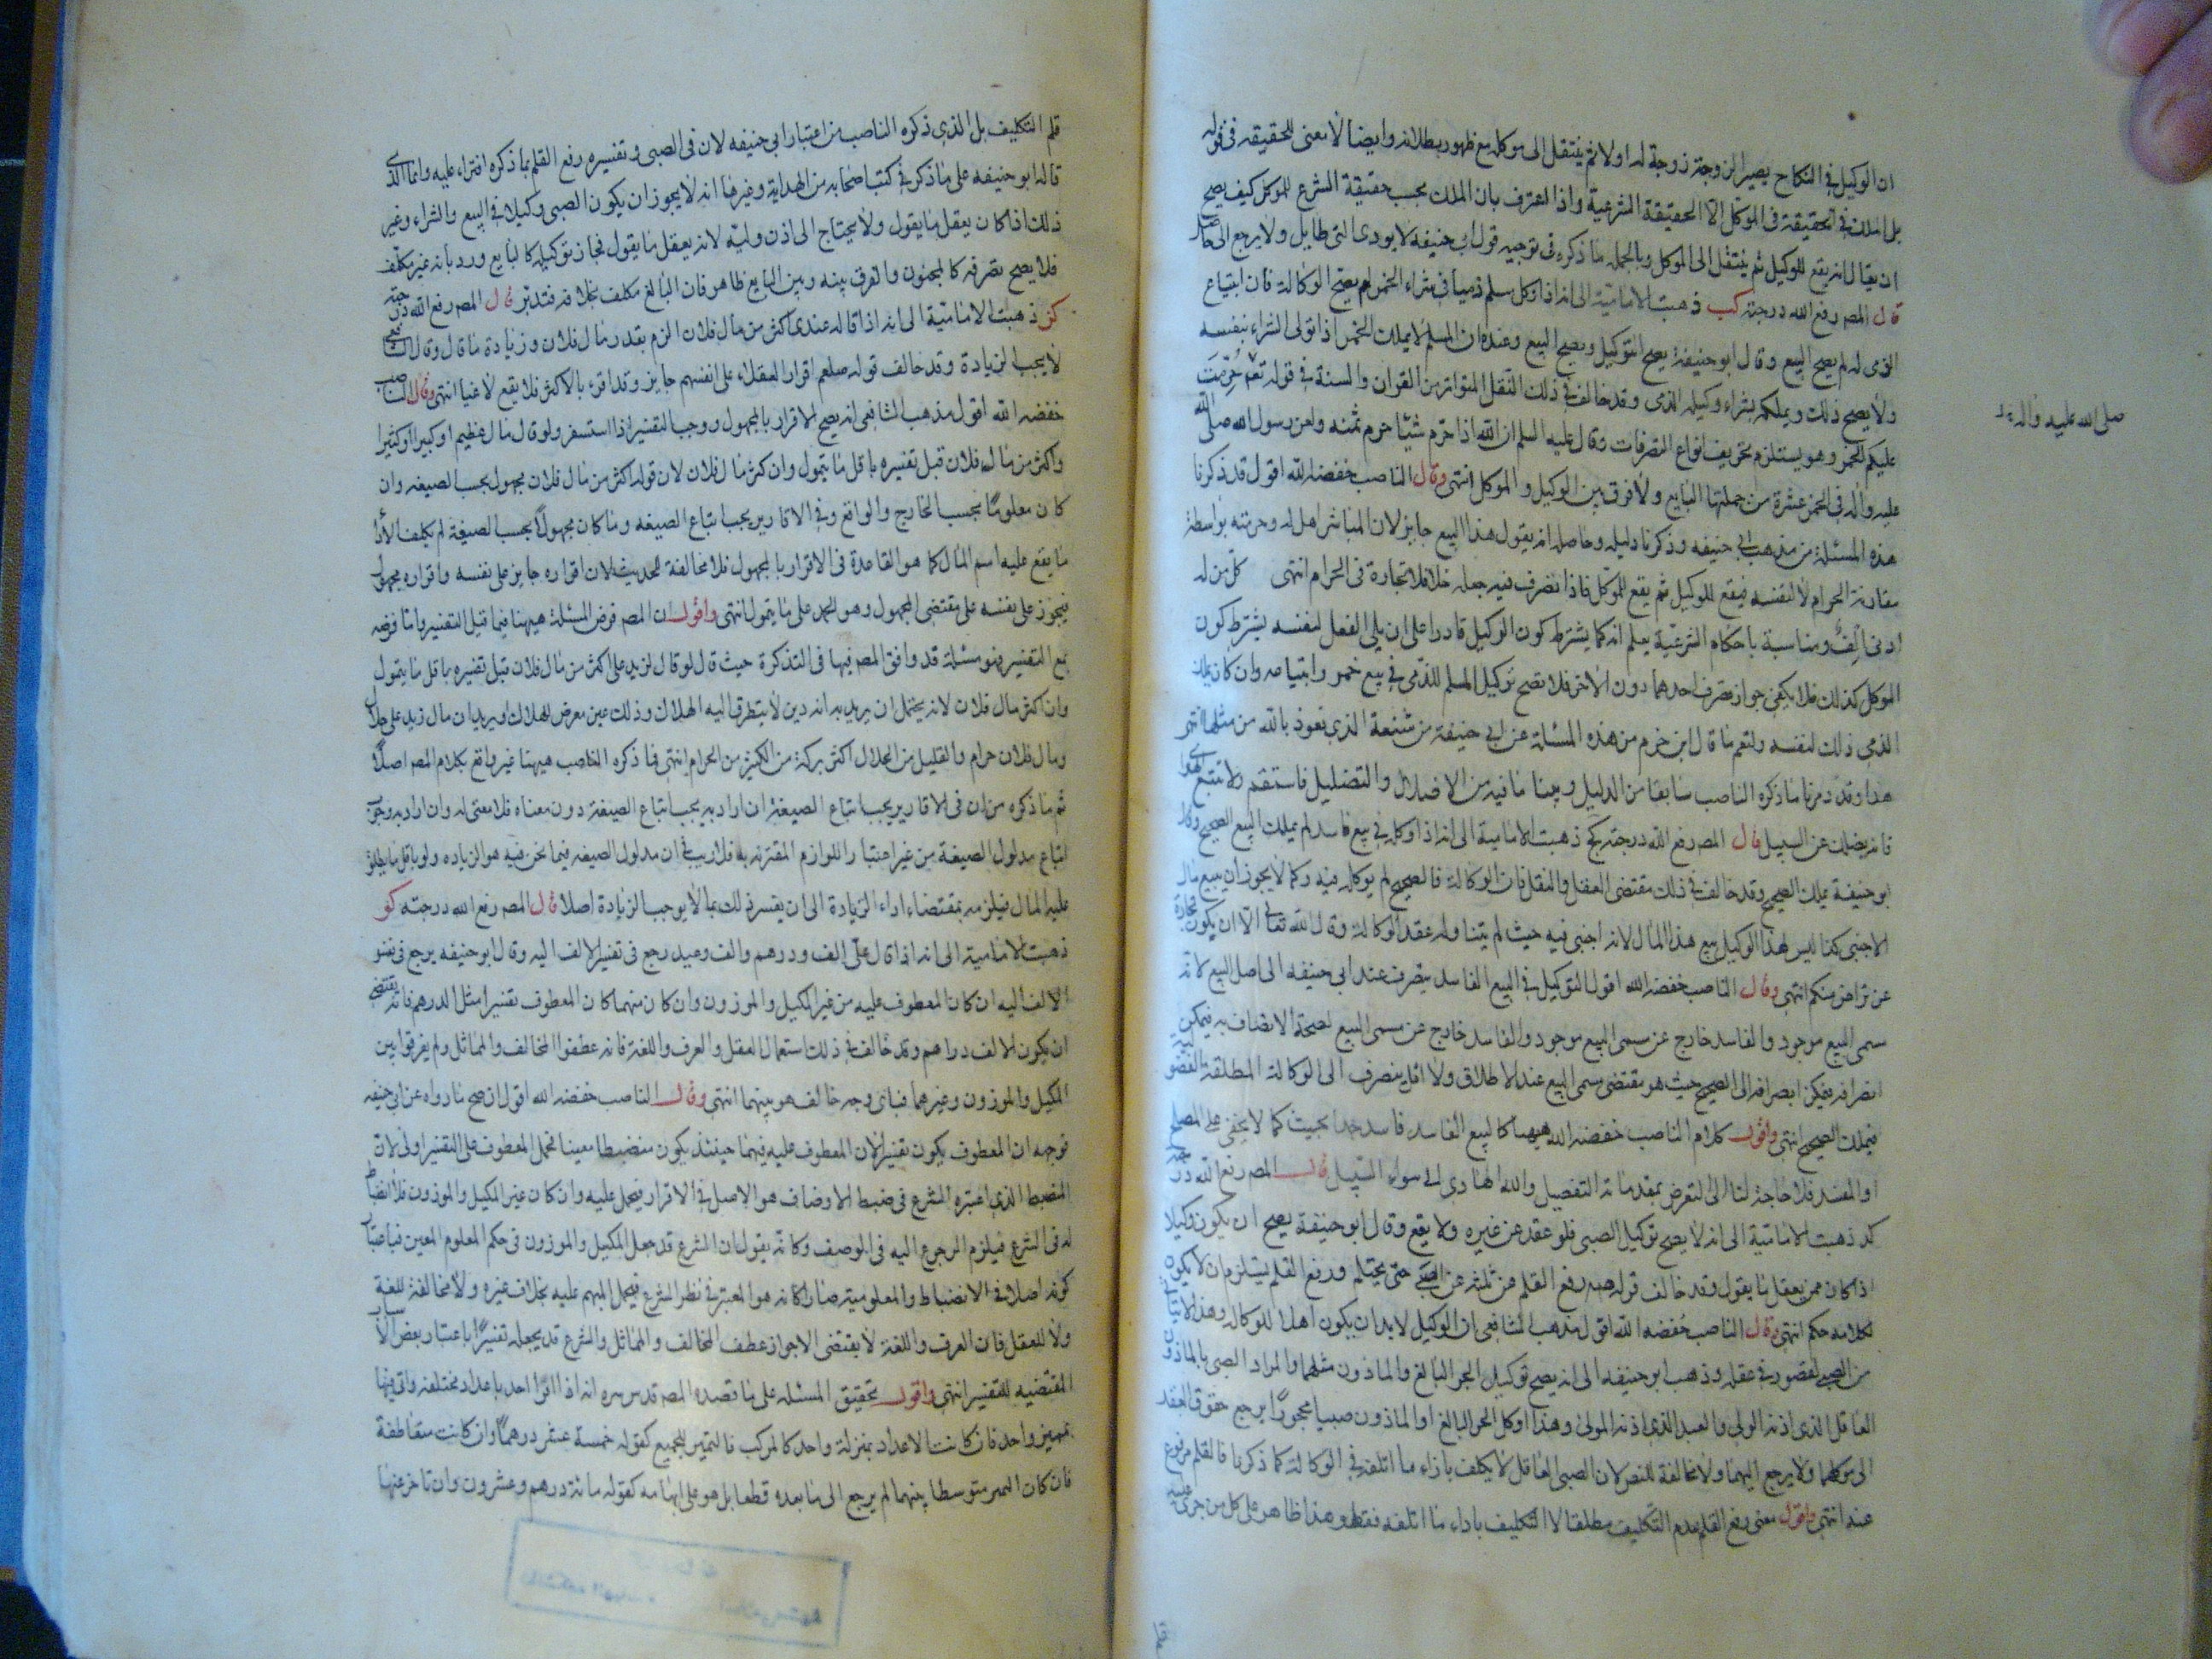 ان الوكيل في النكاح يصير الزوجة زوجة له اولا ثم ينتقل الى موكله مع ظهور بطلانه وايضا لا معنى للحقيقة في قوله
بل الملك في الحقيقة في الموكل الا الحقيقة الشرعية واذا اعترف بان الملك بحسب حقيقة الشرع للموكل كيف يصح
ان يقال انه يقع للوكيل ثم ينتقل الى الموكل وبالجملة ما ذكره في توجيه قول ابي حنيفة لا يودى الى طايل ولا يرجع الى حاصل
قال المص رفع الله درجته كب ذهبت الامامية الى انه اذا وكل مسلم ذميا في شراء الخمر لم يصح الوكالة فان ابتياع
الذمى له لم يصح البيع وقال ابو حنيفة يصح التوكيل ويصح البيع وعنده ان المسلم لا يملك الخمر اذا تولى الشراء بنفسه
ولا يصح ذلك ويملكه بشراء وكيله الذمى وقد خالف في ذلك النقل المتواتر من القران والسنة في قوله تعالى حرمت
عليكم الخمر وهو يستلزم تحريم انواع التصرفات وقال عليه السلم ان الله اذا حرم شيئا حرم ثمنه ولعن رسول الله صلى الله
صلى الله عليه واله
عليه واله في الخمر عشرة من جملتها البايع ولا فرق بين الوكيل والموكل انتهى وقال الناصب خفضه الله اقول قد ذكرنا
هذه المسئلة من مذهب ابي حنيفه وذكرنا دليله وحاصله انه يقول هذا البيع جايز لان المباشر اهل له وحرمته بواسطة
مقارنة الحرام لا لنفسه فيقع للوكيل ثم يقع للموكل فاذا تصرف فيه جعله خلا فلا تجارة في الحرام انتهى كل من له
ادنى الف ومناسبة باحكام الشرعية يعلم انه كما يشترط كون الوكيل قادرا على ان يلى الفعل لنفسه يشترط كون
الموكل كذلك فلا يكفى جواز تصرف احدهما دون الاخر فلا تصح توكيل المسلم للذمى في بيع خمر وابتياعه وان كان يملك
الذمى ذلك لنفسه ولنعم ما قال ابن حزم من هذه المسئلة عن ابي حنيفة من شنعة الذى نعوذ بالله من مثلها انتهى
هذا وقد مرنا ما ذكره الناصب سابقا من الدليل وبينا ما فيه من الاضلال والتضليل فاستقم ولا تتبع الهوى
فانه يضلك عن السبيل قال المص رفع الله درجته كج ذهبت الامامية الى انه اذا وكله في بيع فاسد لم يملك البيع الصحيح وقال
ابو حنيفة يملك الصحيح وقد خالف في ذلك مقتضى العقل والنقل فان الوكالة فالصحيح لم يوكله فيه وكما لا يجوز ان يبيع مال
الاجنبى كذا ليس لهذا الوكيل بيع هذا المال لانه اجنبى فيه حيث لم يتناوله عقد الوكالة وقال الله تعالى الا ان يكون تجارة
عن تراض منكم انتهى وقال الناصب خفضه الله اقول التوكيل في البيع الفاسد يتصرف عند ابي حنيفه الى اصل البيع لانه
سمى البيع موجود والفاسد خارج عن مسمى البيع موجود والفاسد خارج عن مسمى البيع لصحة الاتصاف به فيمكن
انصرافه فيكن انصرافه الى الصحيح حيث هو مقتضى مسمى البيع عند الاطلاق ولا اقل ينصرف الى الوكالة المطلقة
فيملك الصحيح انتهى واقول كلام الناصب خفضه الله هيهنا كالبيع الفاسد فاسد جدا بحيث كما لا يخفى على المصلح
او المفسد فلا حاجة لنا الى التعرض بمقدماته التفصيل والله الهادى الى سواء السبيل قال المص رفع الله درجته
كد ذهبت الامامية الى انه لا يصح توكيل الصبى فلو عقد عن غيره ولا يقع وقال ابو حنيفة يصح ان يكون وكيلا
اذا كان ممن يعقل ما يقول وقد خالف قوله صم رفع القلم عن ثلثة عن الصبى حتى يحتلم ورفع القلم يستلزم ان لا يكون
لكلامه حكم انتهى وقال الناصب خفضه الله اقول مذهب الشافعى ان الوكيل لابد ان يكون اهلا للوكالة وهذا لا يتاتى
من الصبى لقصور في عقله وذهب ابو حنيفه الى انه يصح توكيل الحر البالغ والماذون مثلهما والمراد الصبى بالماذون
العاقل الذى اذنه الولى والعبد الذى اذنه المولى وهذا اوكل الحر البالغ او الماذون صبيا محجورا يرجع حقوق العقد
الى موكلهما ولا يرجع اليهما ولا مخالفة للنص لان الصبى العاقل لا يكلف باداء ما اتلفه في الوكالة كما ذكرنا فالقلم مرفوع
عنه انتهى واقول معنى رفع القلم عدم التكليف مطلقا لا التكليف باداء ما اتلفه فقط وهذا ظاهر على كل من جرى عليه
قلم التكليف بل الذى ذكره الناصب من اعتبار ابى حنيفه لان في الصبى وتفسيره رفع القلم بما ذكره افتراء عليه وانما الذى
قاله ابو حنيفه على ما ذكر في كتب اصحابه من الهداية وغيرها انه لا يجوز ان يكون الصبى وكيلا في البيع والشراء وغير
ذلك اذا كان يعقل ما يقول ولا يحتاج الى اذن وليه لانه يعقل ما يقول فجاز توكيله كالبايع ورد بانه غير مكلف
فلا يصح تصرفه كالمجنون والفرق بينه وبين البايع ظاهر فان البالغ مكلف بخلافه فتدبر قال المص رفع الله درجته
كز ذهبت الامامية الى انه اذا قاله عندى اكثر من مال فلان الزم بقدر مال فلان وزيادة ما قال وقال الشافعى
لا يجب الزيادة وقد خالف قوله صلعم اقرار العقلاء على انفسهم جايز وقد اقر بالاكثر فلا يقع لاغيا انتهى وقال الناصب
خفضه الله اقول مذهب الشافعى انه يصح الاقرار بالمجهول ووجب التفسير اذا استفسر ولو قال مال عظيم او كبير او كثير
واكثر من مال فلان قبل تفسيره باقل ما يتمول وان كثر مال فلان لان قوله اكثر من مال فلان مجهول بحسب الصيغه وان
كان معلوما بحسب الخارج والواقع وفي الاقارير يجب اتباع الصيغه وما كان مجهولا بحسب الصيغة لم يكلف الا اداء
ما يقع عليه اسم المال كما هو القاعدة في الاقرار بالمجهول فلا مخالفة للحديث لان اقراره جايز على نفسه واقراره مجهول
فيجوز على نفسه على مقتضى المجهول وهو الحمل على ما يتمول انتهى واقول ان المص فرض المسئلة هيهنا فيما قبل التفسير واما فرضه
مع التفسير فهو مسئلة قد وافق المص فيها في التذكرة حيث قال لو قال لزيد على اكثر من مال فلان قبل تفسيره باقل ما يتمول
وان اكثر مال فلان لانه يحتمل ان يريد به انه دين لا يتطرق اليه الهلاك وذلك عين معرض للهلاك او يريد ان مال زيد على حلال
ومال فلان حرام والقليل من الحلال اكثر بركة من الكثير من الحرام انتهى فما ذكره الناصب هيهنا غير واقع بكلام المص اصلا
ثم ما ذكره من ان في الاقارير يجب اتباع الصيغة ان اراد به يجب اتباع الصيغة دون معناه فلا معنى له وان اراد به وجوب
اتباع مدلول الصيغة من غير اعتبار اللوازم المقترنه به فلا ريب في ان مدلول الصيغه فيما نحن فيه هو الزياده ولو باقل ما يطلق
عليه المال فيلزمه بمقتضاه اداء الزيادة الى ان يفسر ذلك بما لا يوجب الزيادة اصلا قال المص رفع الله درجته كو
ذهبت الامامية الى انه اذا قال على الف ودرهم والف وعبد رجع في تفسير الالف اليه وقال ابو حنيفه يرجع في تفسير
الالف اليه ان كان المعطوف عليه من غير المكيل والموزون وان كان منهما كان المعطوف تفسيرا مثل الدرهم فانه يقتضى
ان يكون الالف دراهم وقد خالف في ذلك استعمال العقل والعرف واللغة فانه عطفوا المخالف والمماثل ولم يفرقوا بين
المكيل والموزون وغيرهما فباى وجه خالف هو بينهما انتهى وقال الناصب خفضه الله اقول ان صح ما رواه عن ابي حنيفه
فوجهه ان المعطوف يكون تفسيرا لان المعطوف عليه فيهما حينئذ يكون منضبطا معينا فحمل المعطوف على التفسير اولى لان
المضبط الذى اعتبره الشرع في ضبط الاوصاف هو الاصل في الاقرار فيحمل عليه وان كان غير المكيل والموزون فلا انضباط
له في الشرع فيلزم الرجوع اليه في الوصف وكانه يقول ان الشرع قد جعل المكيل والموزون في حكم المعلوم المعين فباعتبار
كونه اصلا في الانضباط والمعلومية صار كانه هو المعتبر في نظر الشرع فيحمل المبهم عليه بخلاف غيره ولا مخالفة للغة
ولا للعقل فان العرف واللغة لا يقتضى الا جواز عطف المخالف والمماثل والشرع قد يجعله تفسيرا باعتبار بعض الاسباب
المقتضيه للتفسير انتهى واقول تحقيق المسئله على ما قصده المص قدس سره انه اذا اقر احد باعداد مختلفه واتى فيها
بمميز واحد فان كانت الاعداد بمنزلة واحد كالمركب فالتميز للجميع كقوله خمسة عشر درهما وان كانت متعاطفة
فان كان المميز متوسطا بينهما لم يرجع الى ما بعده قطعا بل هو على ابهامه كقوله مائة درهم وعشرون وان تاخر عنها